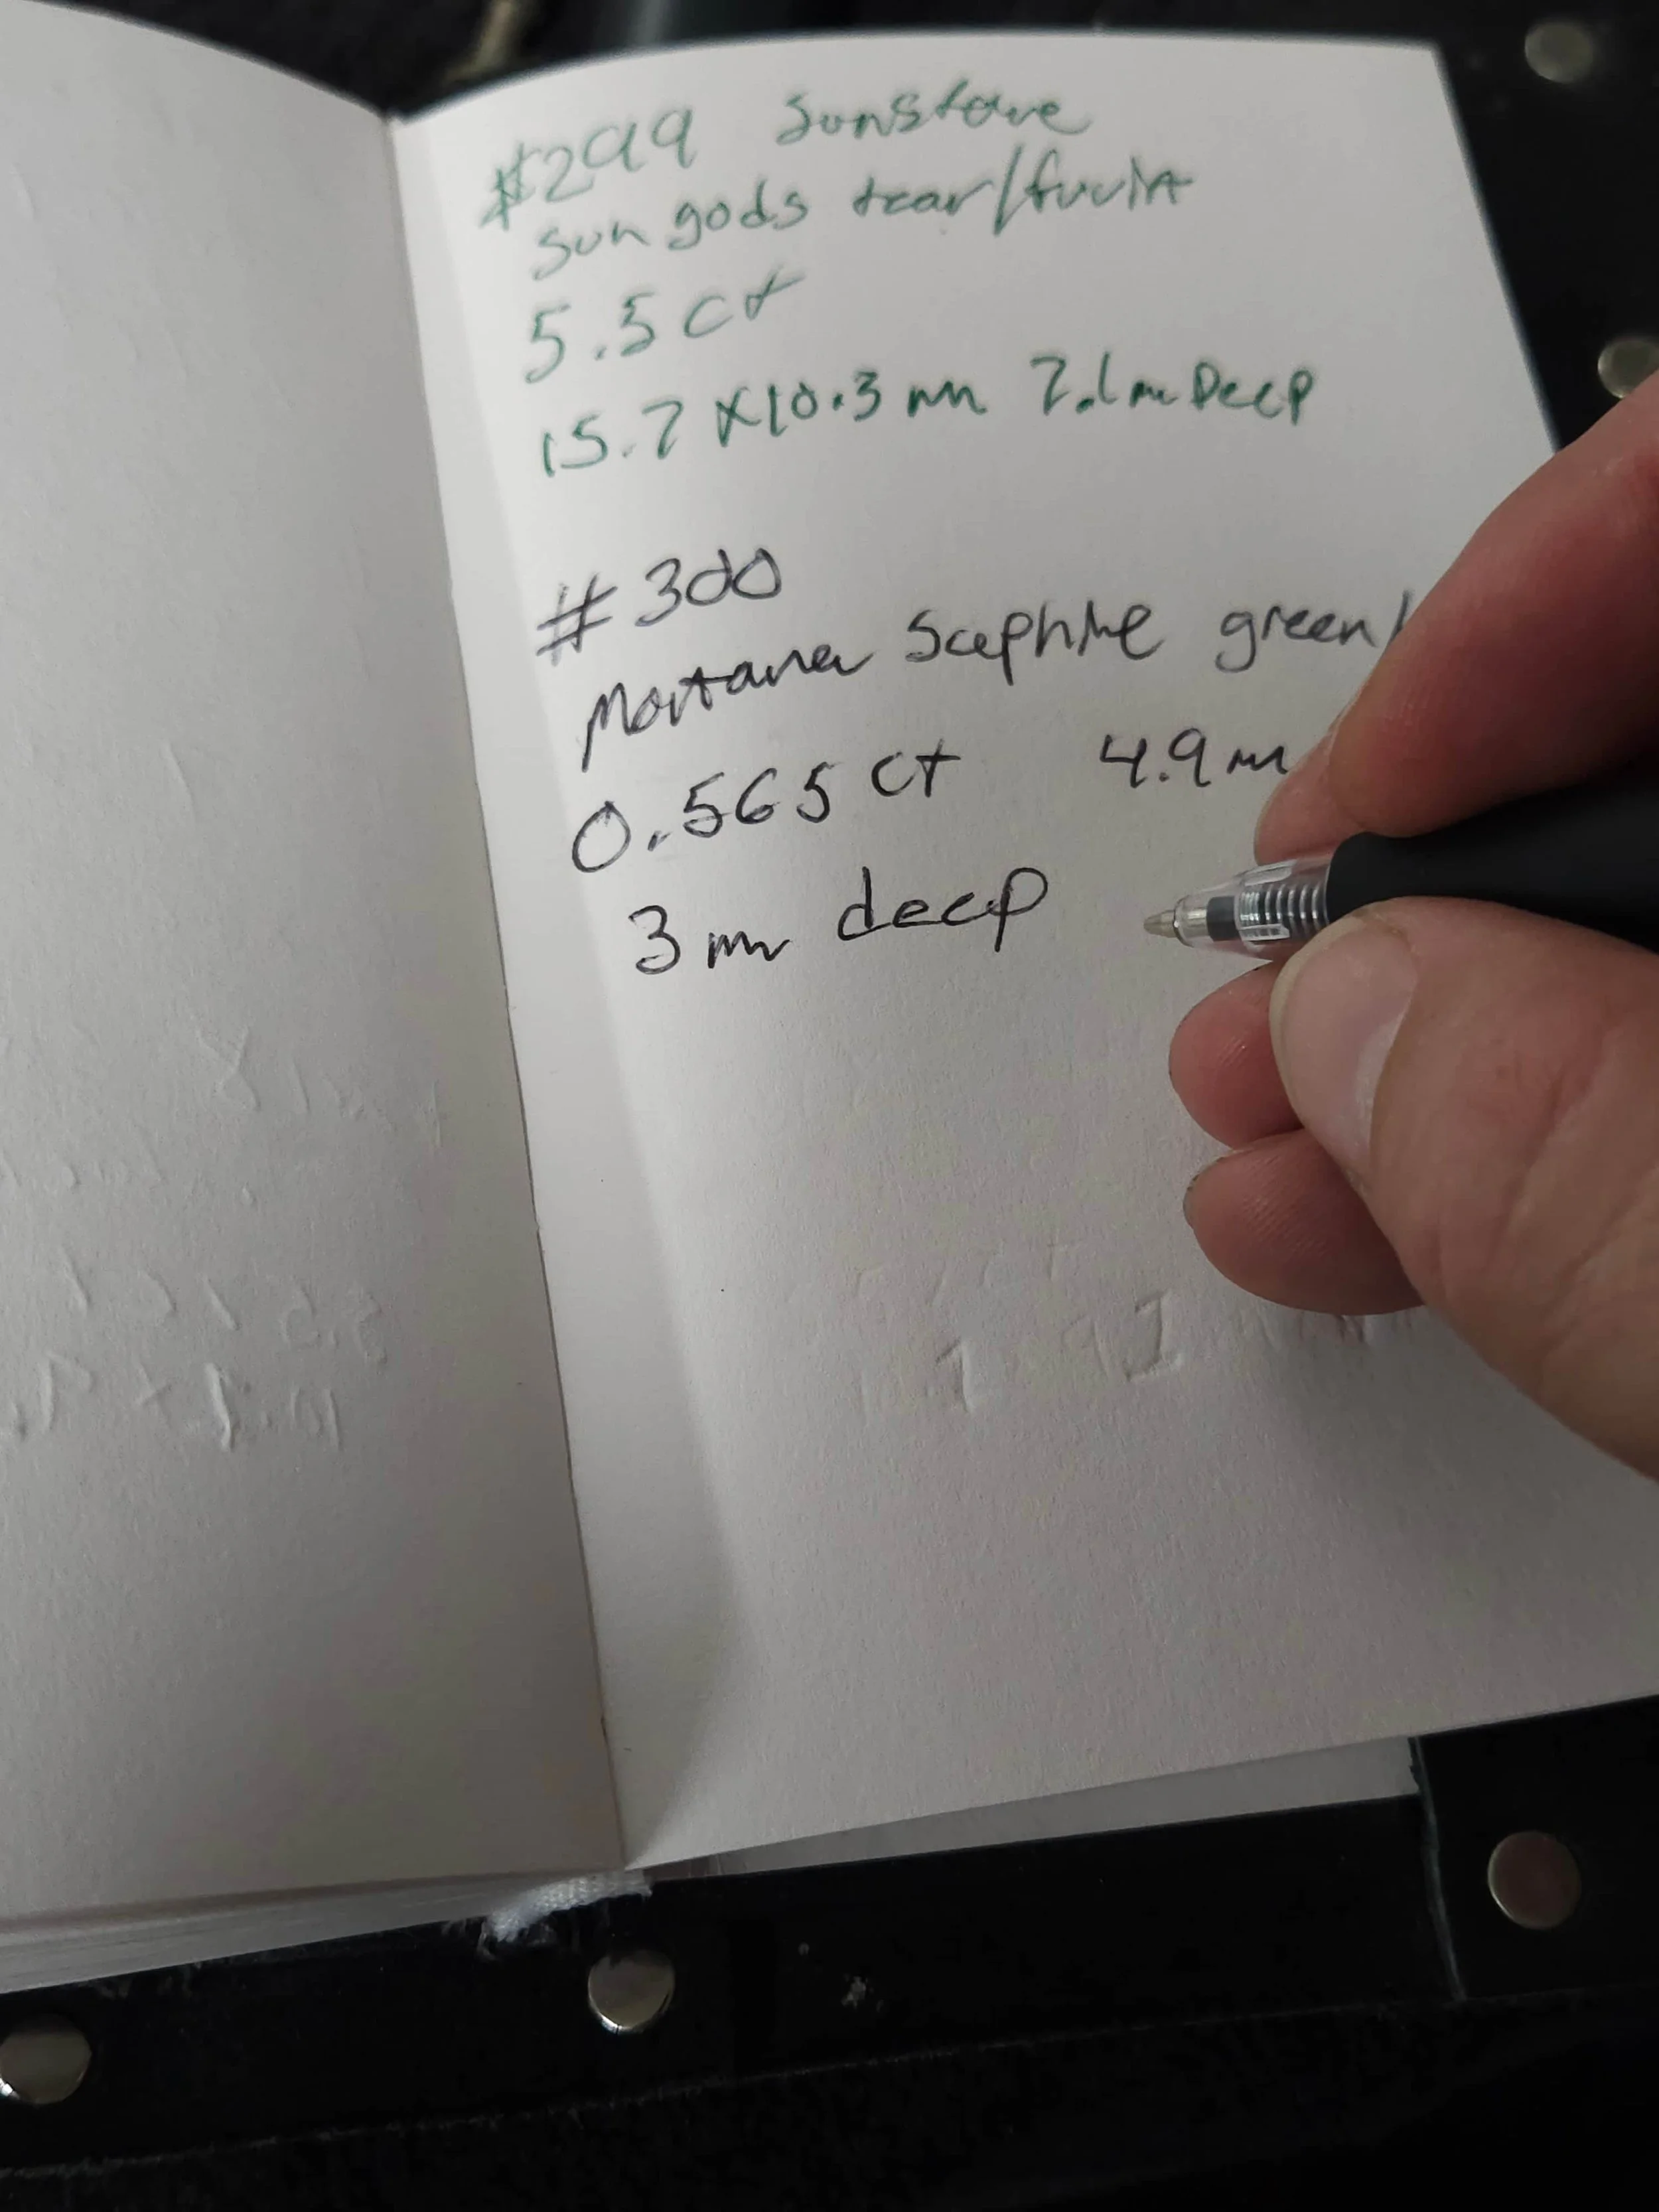 #299 Sunstone
Sun gods tear/fruit
5.5 ct
15.7 x 10.3 mm 7.1 mm Deep
#300
Montana Saphire green/
0.565 ct 4.9 m
3 mm deep